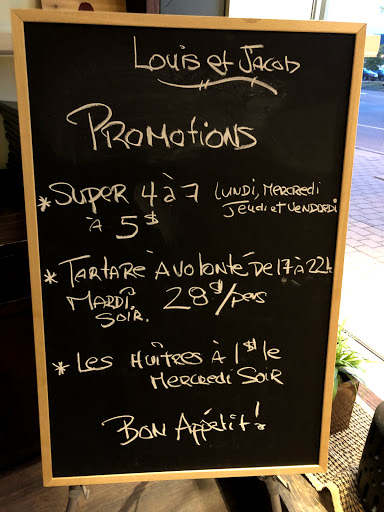 Louis et Jacob
Promotions
* Super 4 à 7 Lundi, Mercredi
Jeudi et Vendredi
à 5$
* Tartare à volonté de 17 à 22h
Mardi 28$/pers
soir.
* Les Huîtres à 1$ le
Mercredi Soir
Bon Appétit!